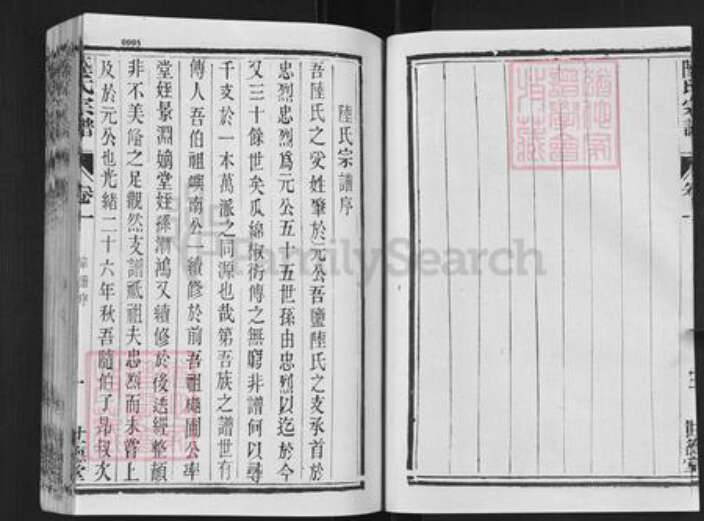 0005
陸氏宗譜
卷一
陸氏宗譜序
吾陸氏之受姓肇於元公吾鹽陸氏之支承首於
忠烈忠烈為元公五十五世孫由忠烈以迄於今
又三十餘世矣瓜綿椒衍傳之無窮非譜何以尋
千支於一本萬派之同源也哉第吾族之譜世有
傳人吾伯祖嶼南公一續修於前吾祖 圃公率
堂姪景淵嫡堂姪孫 鴻又續修於後迭經整頓
非不美備之足觀然支譜祇祖夫忠烈而未嘗上
及於元公也光緒二十六年秋吾隨伯了昂叔次
陸氏宗譜
卷一
譜序
一
世德堂
FamilySearch